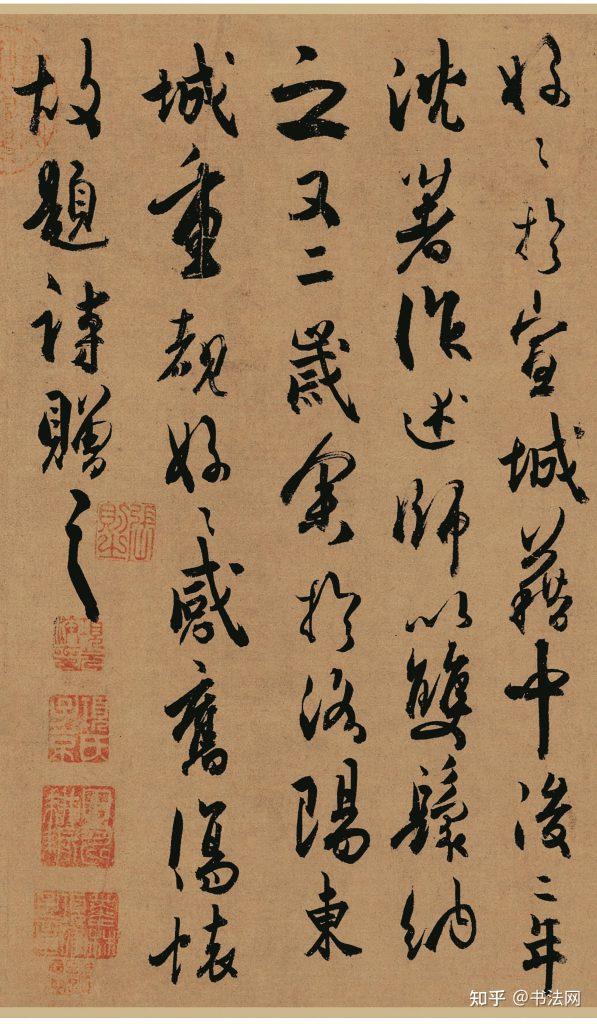 好〻於宣城藉中後二年
沈著作述師以雙鬟納
之又二歲余於洛陽東
城重覩好〻感舊傷懷
故題詩贈之
張則之
知乎 @书法网